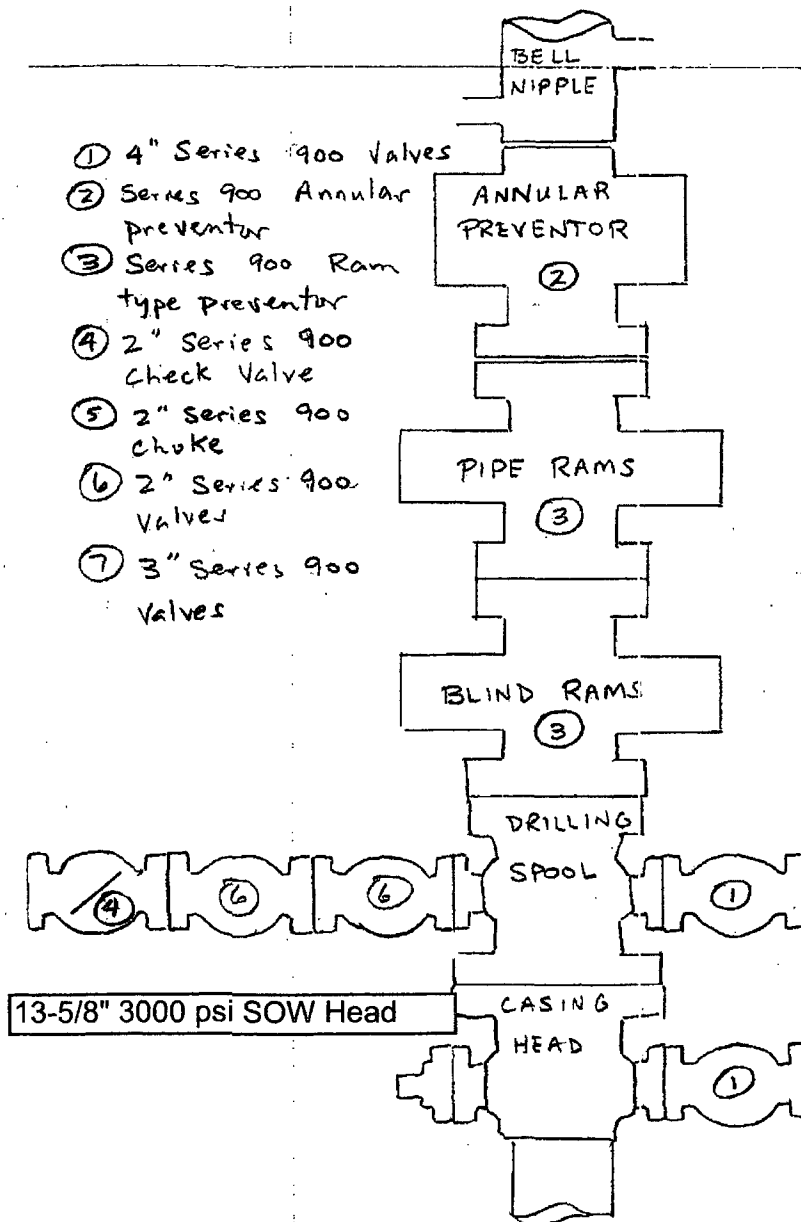 BELL
NIPPLE
① 4" Series 900 Valves
② Series 900 Annular
preventor
③ Series 900 Ram
type preventor
④ 2" Series 900
Check Valve
⑤ 2" Series 900
choke
⑥ 2" Series 900
Valves
⑦ 3" Series 900
Valves
ANNULAR
PREVENTOR
②
PIPE RAMS
③
BLIND RAMS
③
DRILLING
SPOOL
④ ⑥ ⑥ ①
13-5/8" 3000 psi SOW Head
CASING
HEAD
①